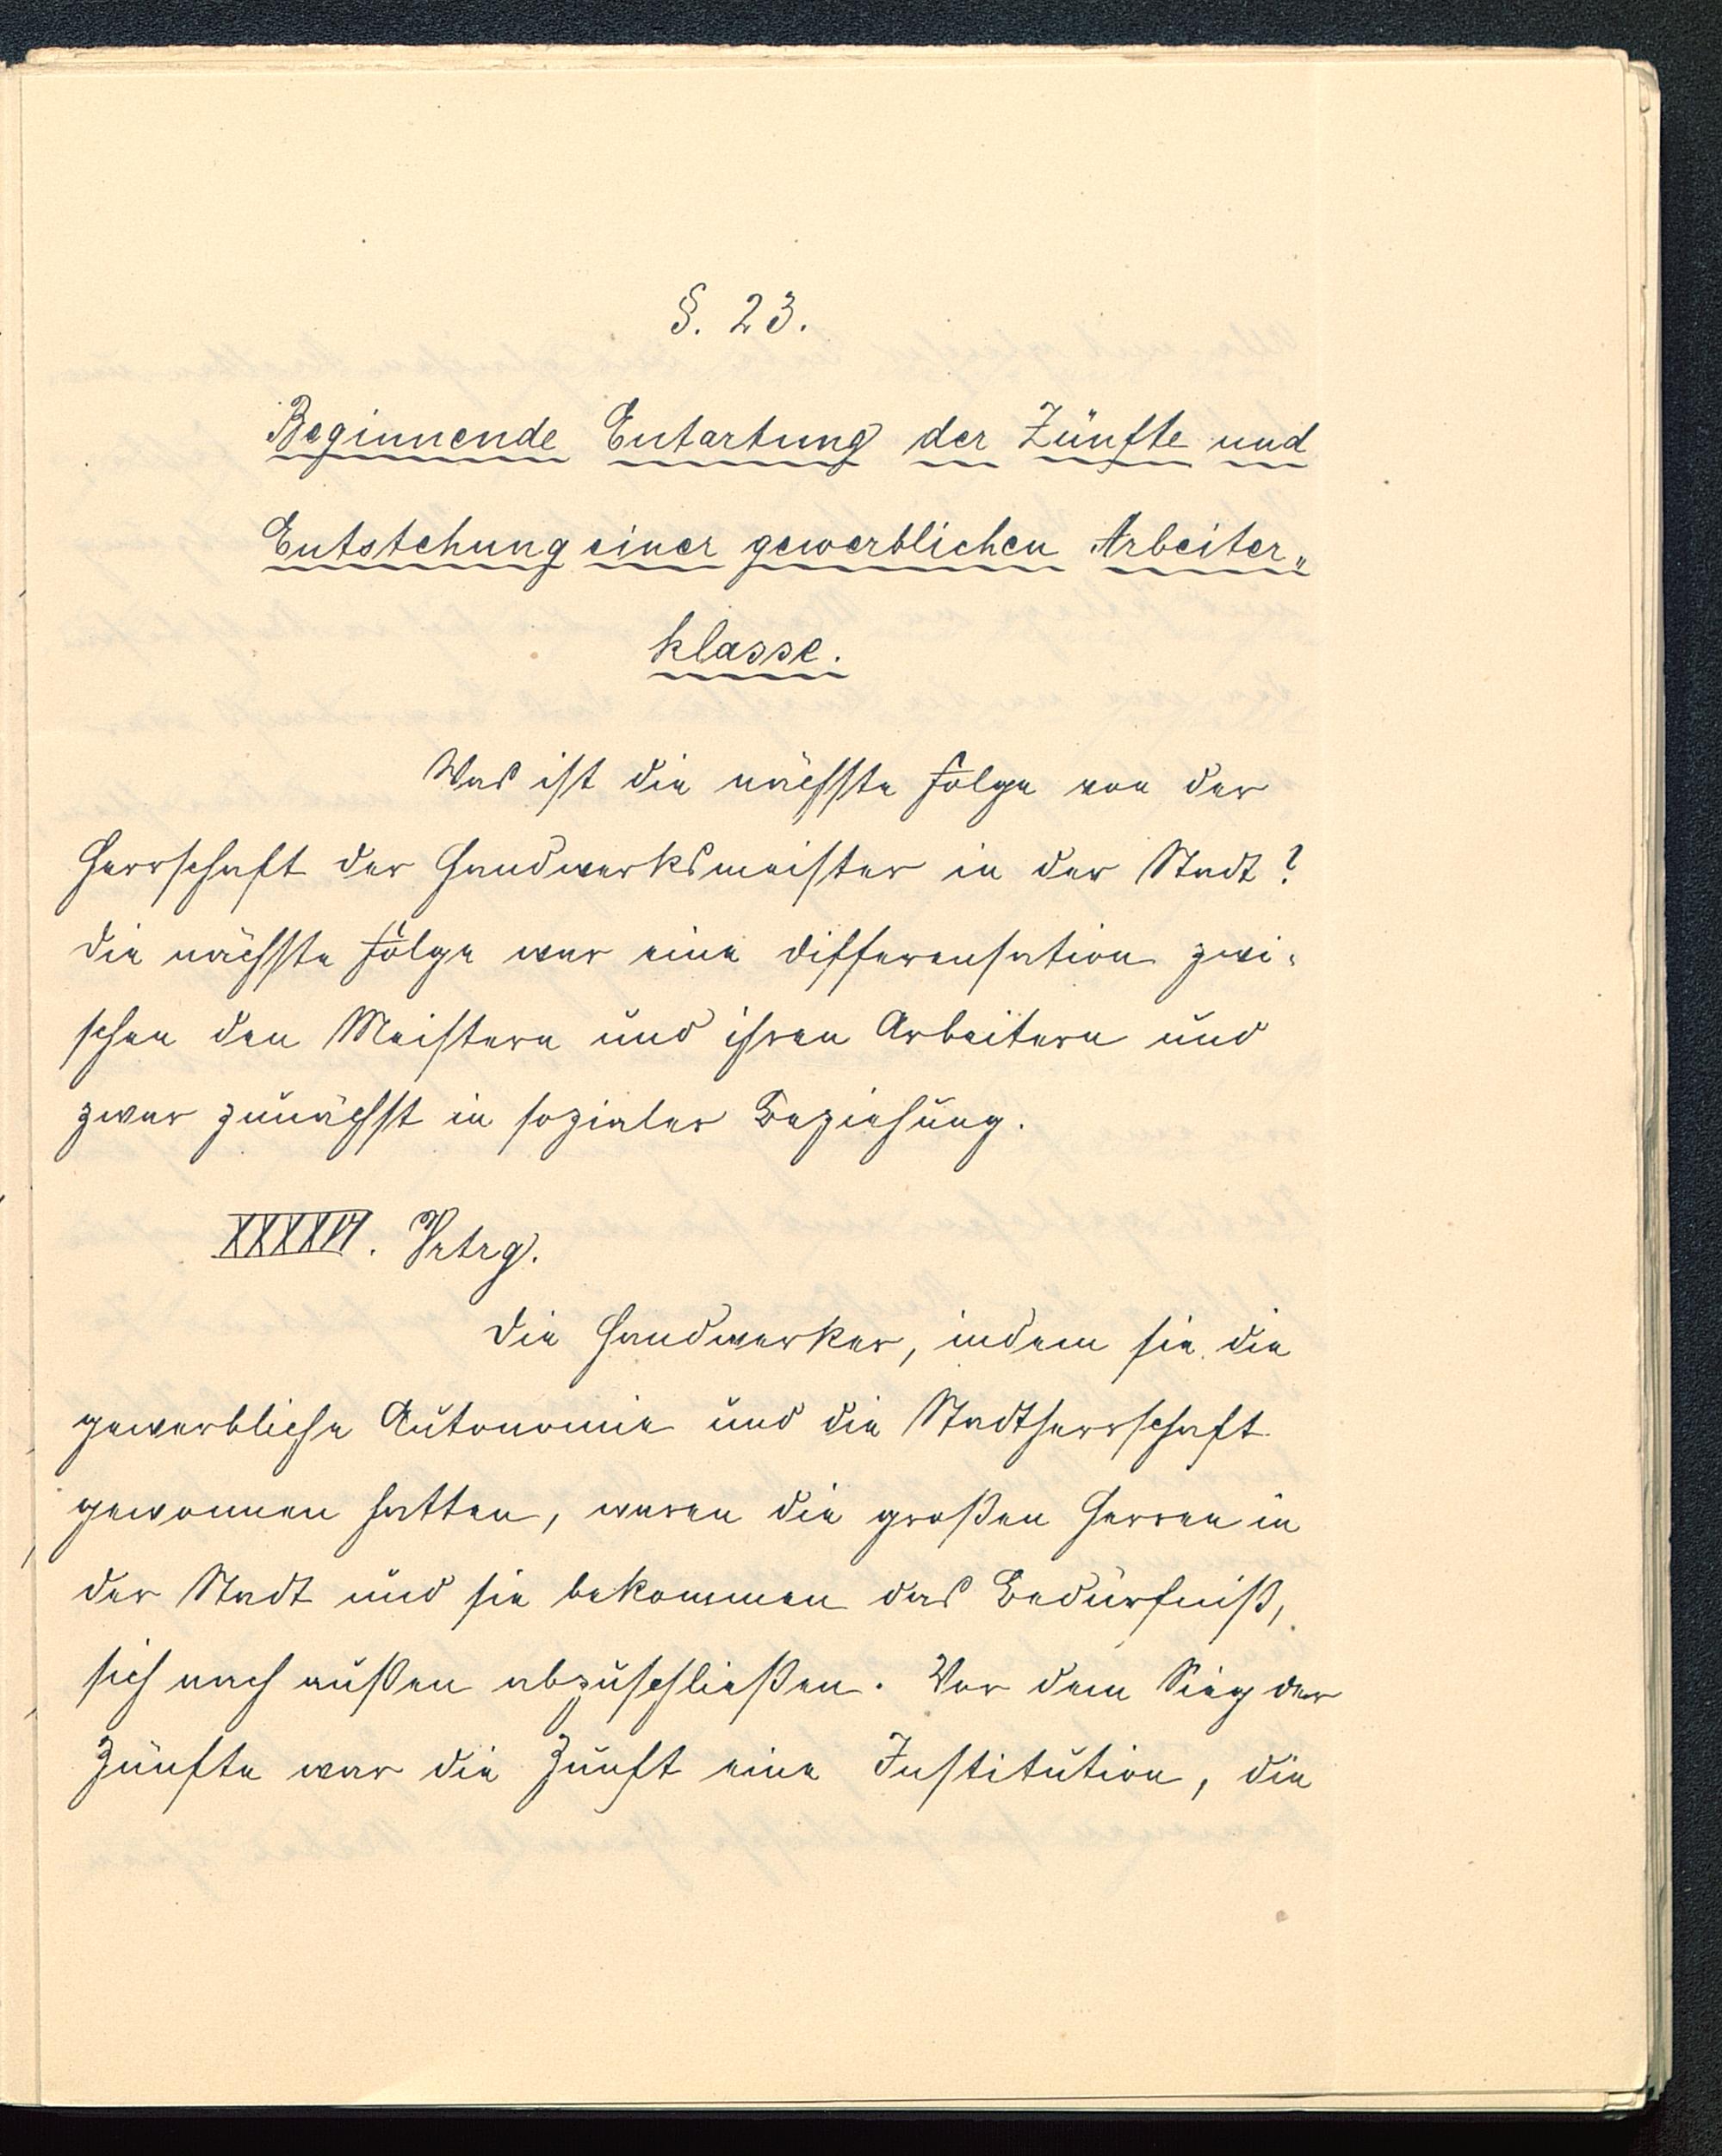 §. 23.
Beginnende Entartung der Zünfte und
Entstehung einer gewerblichen Arbeiter„
klasse.
Was ist die nächste Folge von der
Herrschaft der Handwerksmeister in der Stadt?
Die nächste Folge war eine Differensation zwi-
schen den Meistern und ihren Arbeitern und
zwar zunächst in sozialer Beziehung.
XXXXVI. Vrtrg.
Die Handwerker, indem sie die
gewerbliche Autonomie und die Stadtherrschaft
gewonnen hatten, waren die großen Herren in
der Stadt und sie bekommen das Bedürfniß,
sich nach außen abzuschließen. Vor dem Sieg der
Zünfte war die Zunft eine Institution, die